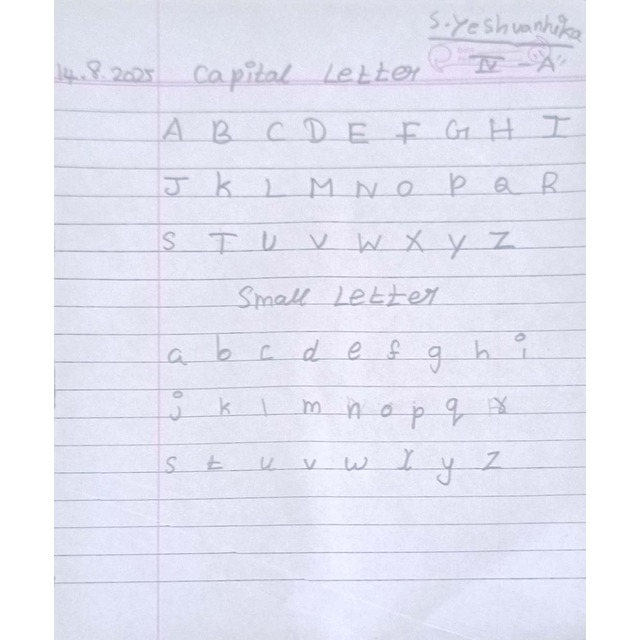 S. Yeshvanhika
IV - "A"
14.8.2025 Capital Letter
A B C D E F G H I
J K L M N O P Q R
S T U V W X Y Z
Small Letter
a b c d e f g h i
j k l m n o p q r
s t u v w x y z